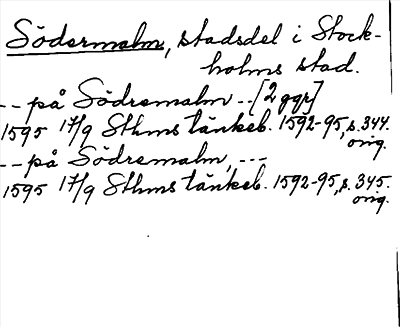 Södermalm, stadsdel i Stock-
holms stad.
-- på Södremalm -- [2 ggr]
1595 17/9 Sthms tänkeb. 1592-95, s. 344.
orig.
-- på Södremalm, ---
1595 17/9 Sthms tänkeb. 1592-95, s. 345.
orig.